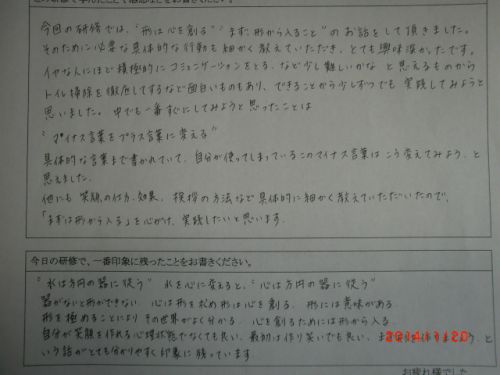 今回の研修では、"形は心を創る" "まず、形から入ること"のお話をして頂きました。
そのために必要な具体的な行動を細かく教えていただき、とても興味深かったです。
イヤな人にほど積極的にコミュニケーションをとる、など少し難しいかな と思えるものから
トイレ掃除を徹底してするなど面白いものもあり、できることから少しずつでも 実践してみようと
思いました。中でも一番すぐにしてみようと思ったことは
"マイナス言葉をプラス言葉に変える"
具体的な言葉まで書かれていて、自分が使ってしまっているこのマイナス言葉は こう変えてみよう、と
思えました。
他にも 笑顔の仕方、効果、挨拶の方法など具体的に細かく教えていただいたので、
「まずは形から入る」を心がけ、実践したいと思います。
今日の研修で、一番印象に残ったことをお書きください。
"水は方円の器に従う" 水を心に変えると、"心は方円の器に従う"
器がないと形ができない 心は形を求め形は心を創る。形には意味がある。
形を極めることによりその世界がよく分かる。心を創るためには形から入る。
自分が笑顔を作れる心理状態でなくても良い、最初は作り笑いでも良い、
という話がとても分かりやすく印象に残っています。
2014/11/20
お疲れ様でした